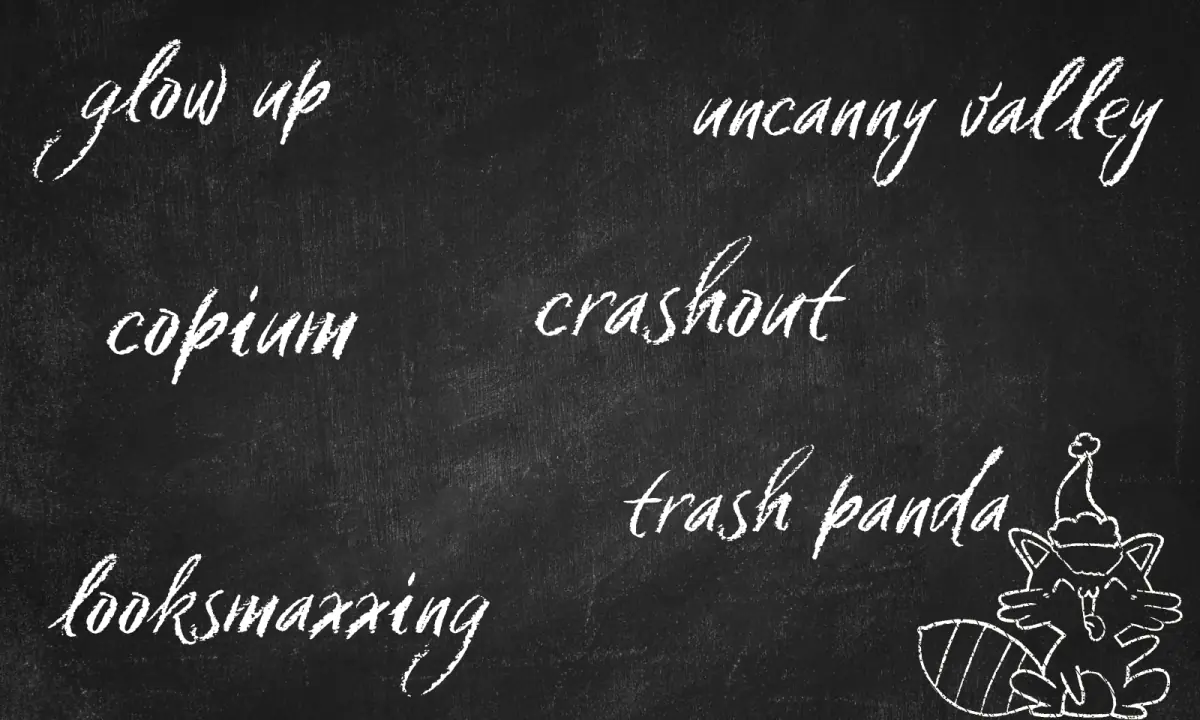 glow up
uncanny valley
copium
crashout
trash panda
looksmaxxing